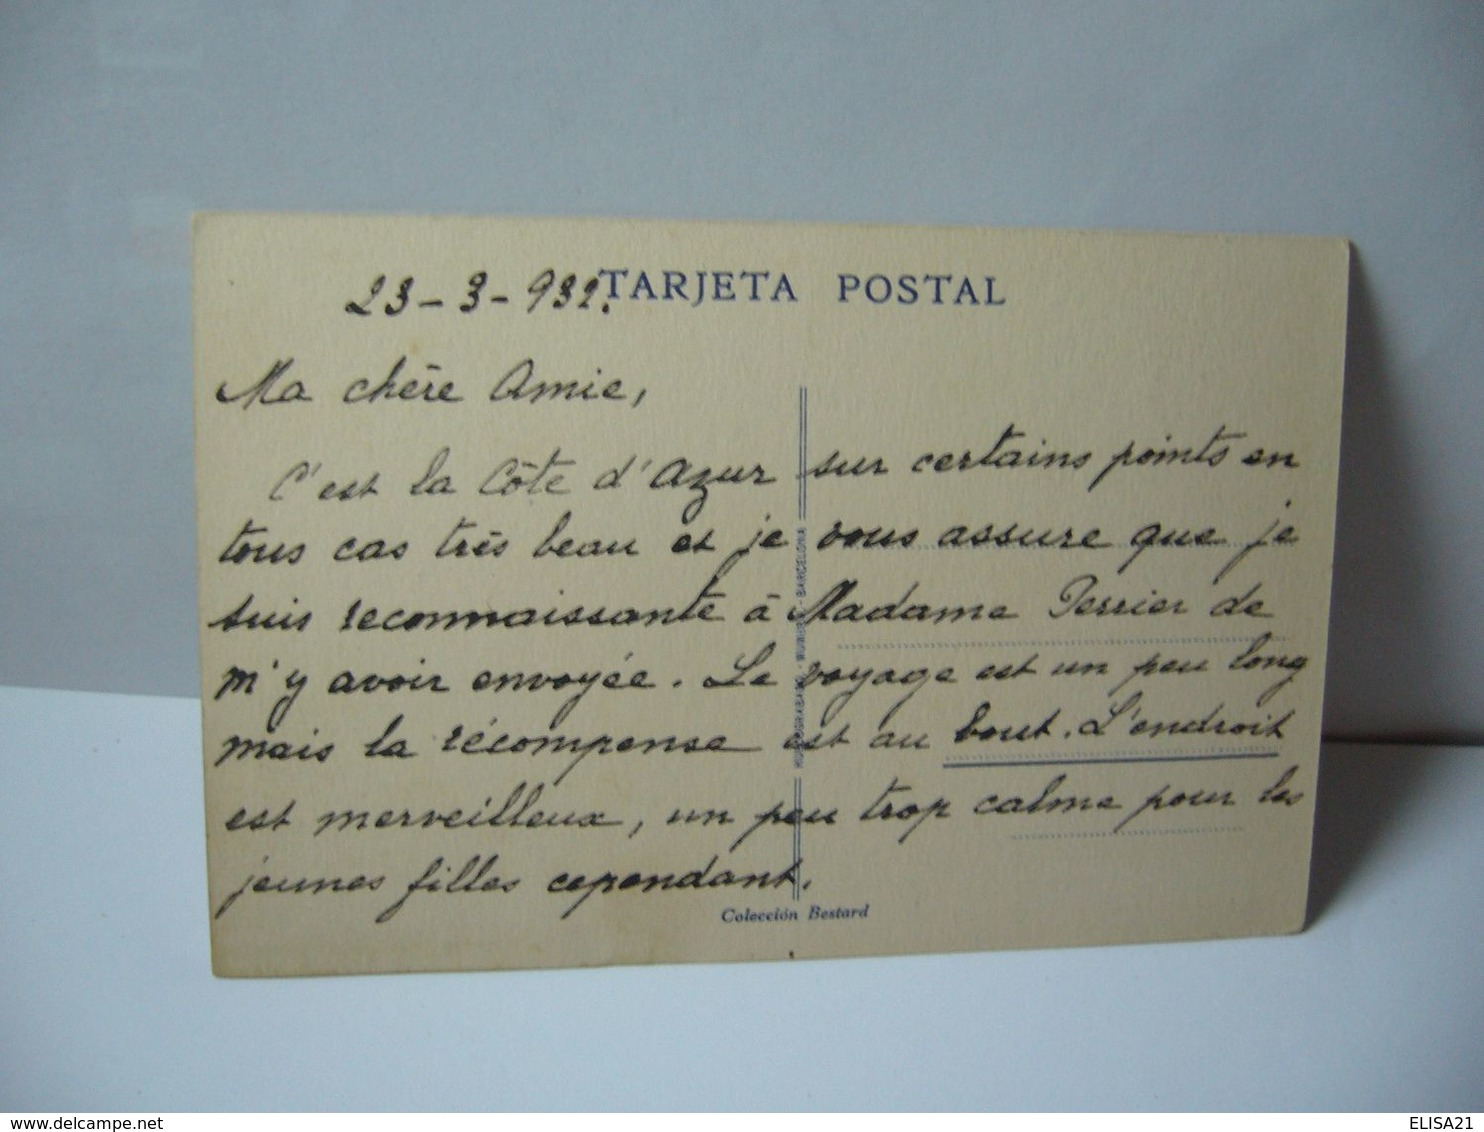 23-3-932.
TARJETA POSTAL
Ma chère Amie,
C'est la Côte d'Azur sur certains points en
tous cas très beau et je vous assure que je
suis reconnaissante à Madame Perrier de
m'y avoir envoyée. Le voyage est un peu long
mais la récompense est au bout. L'endroit
est merveilleux, un peu trop calme pour les
jeunes filles cependant.
HUECOGRABADO - MUMBRÚ - BARCELONA
Colección Bestard
delcampe.net
ELISA21